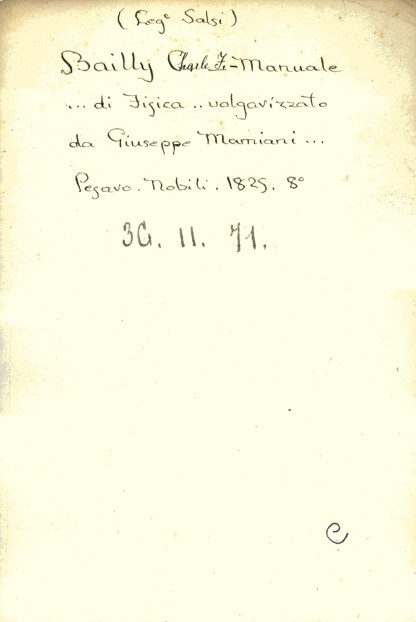 (Leg.e Salsi)
Bailly Charle F.-Manuale
... di Fisica .. volgarizzato
da Giuseppe Mamiani ...
Pesaro. Nobili. 1825. 8°
3G. II. 71.
e